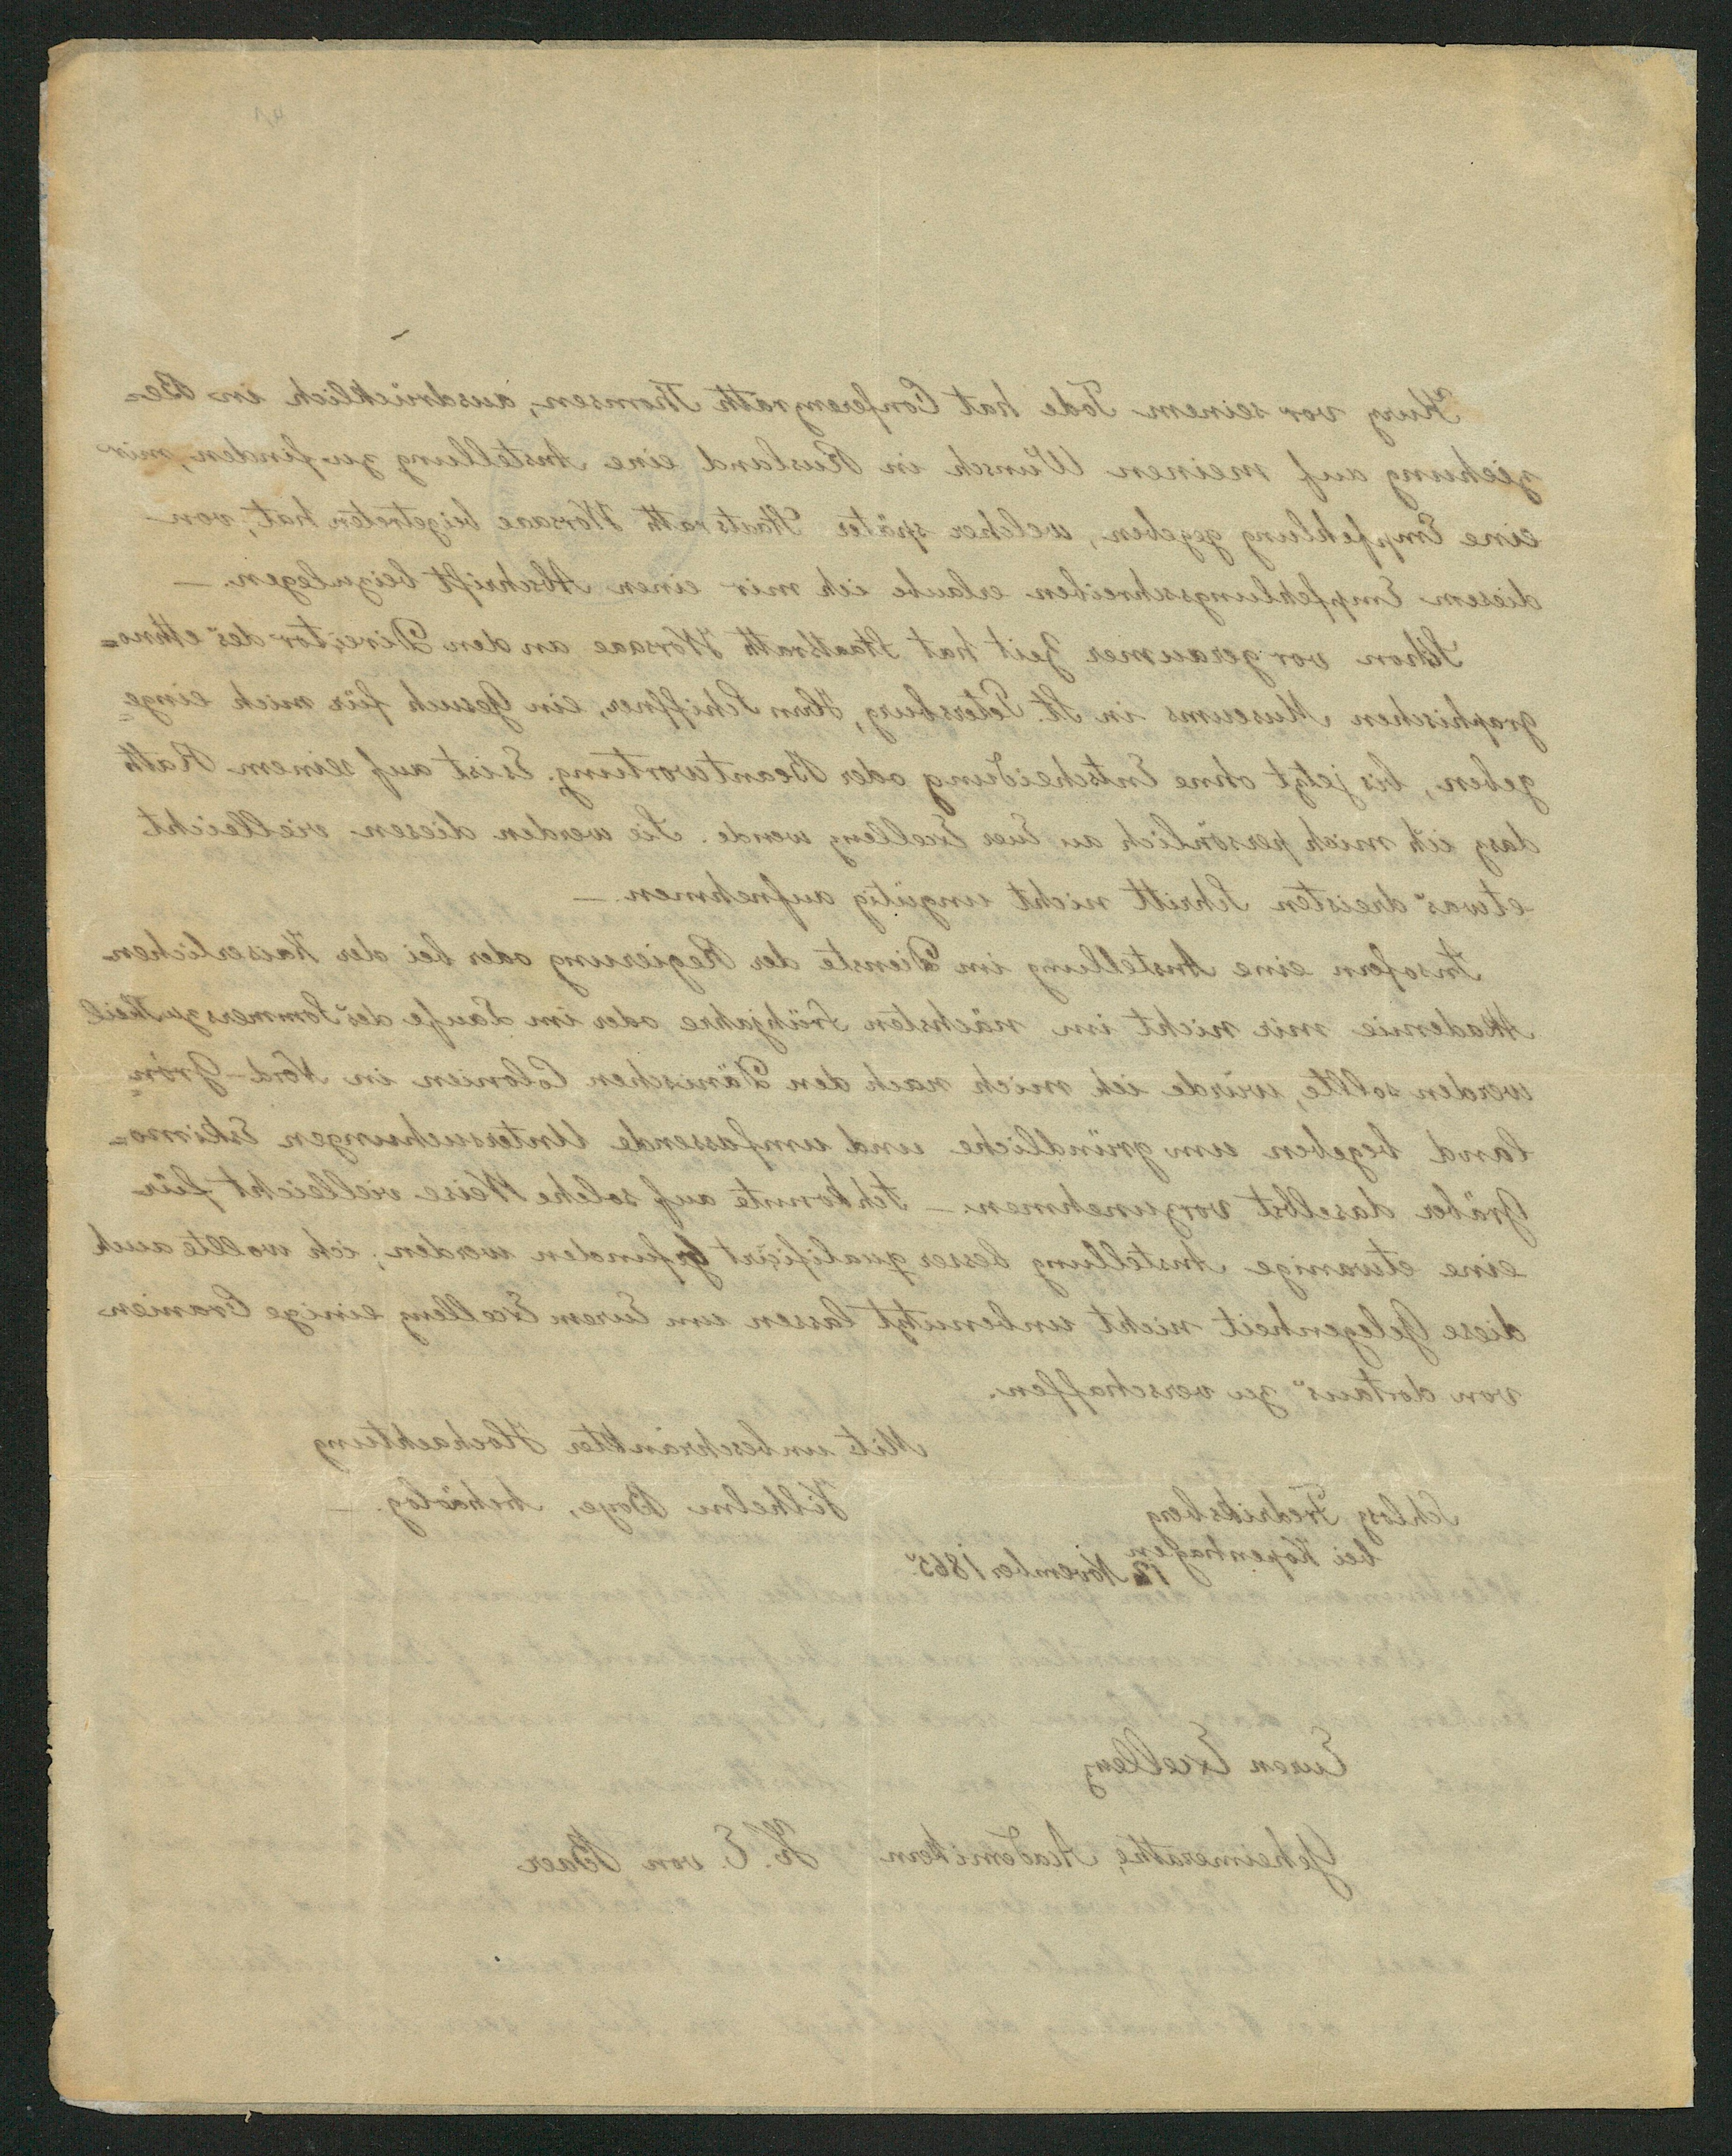 Kurz vor seinem Tode hat Conferenzrath Thomsen, ausdrücklich in Be-
ziehung auf meinen Wunsch in Rusland eine Anstellung zu finden, mir
eine Empfehlung gegeben, welcher später Staatsrath Worsaae beigetreten hat; von
diesem Empfehlungsschreiben erlaube ich mir einen Abschrift beizulegen. —
Schon vor geraumer Zeit hat Staatsrath Worsaae an den Director des ethno-
graphischen Museums in St. Petersburg, Herrn Schiffner, ein Gesuch für mich einge-
geben, bis jetzt ohne Entscheidung oder Beantwortung. Es ist auf seinem Rath
dasz ich mich persönlich an Euer Excellenz wende. Sie werden diesen vielleicht
etwas dreisten Schritt nicht ungütig aufnehmen. —
Insofern eine Anstellung im Dienste der Regierung oder bei der Kaiserlichen
Akademie mir nicht im nächsten Frühjahre oder im Laufe des Sommers zu Theil
werden sollte, würde ich mich nach den Dänischen Colonien in Nord-Grön-
land begeben um gründliche und umfassende Untersuchungen Eskimo-
Gräber daselbst vorzunehmen. — Ich konnte auf solche Weise vielleicht für
eine etwanige Anstellung besser qualificirt gefunden werden; ich wollte auch
diese Gelegenheit nicht unbenutzt lassen um Eurem Excellenz einige Cranien
von dortaus zu verschaffen.
Mit unbeschränkter Hochachtung
Vilhelm Boye, Archäolog. —
Schlosz Fredriksberg
bei Kopenhagen
12 November 1865.
Euren Excellenz
Geheimerathe, Academikern K. E. von Baer